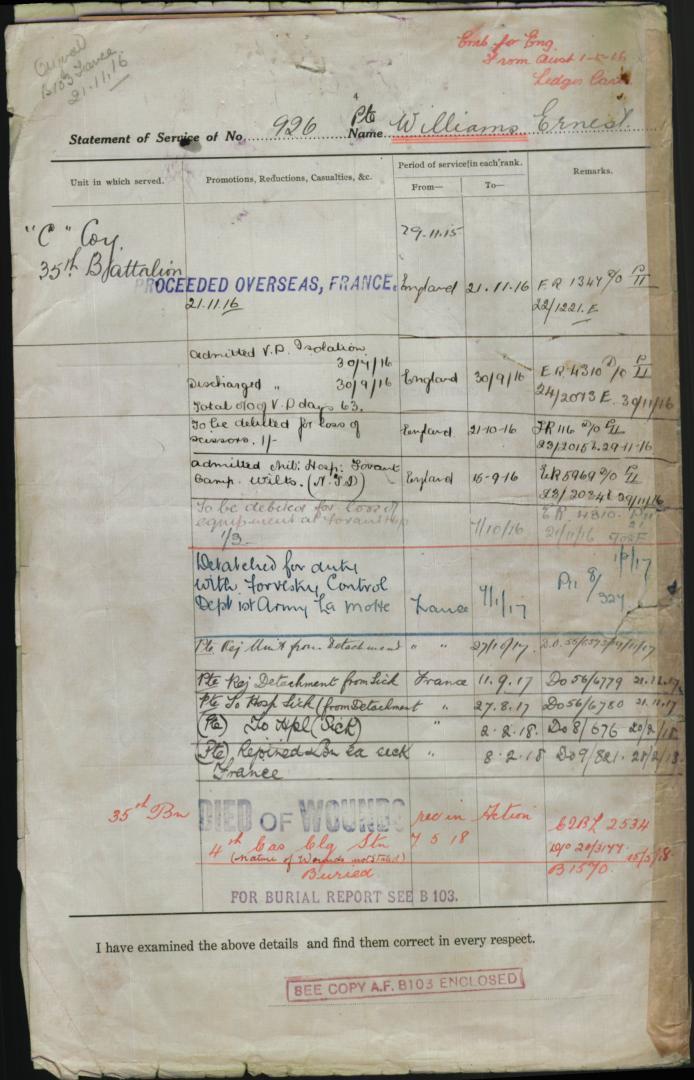 B103 France
21.11.16
Emb for Eng
From Aust 1-5-16
Statement of Service of No. 926 Pte Name Williams Ernest
Unit in which served. Promotions, Reductions, Casualties, &c. Period of service in each rank. Remarks.
From— To—
29.11.15
"C" Coy.
35th Battalion
PROCEEDED OVERSEAS, FRANCE. England 21.11.16 ER 1347 D/O P II
21.11.16 22/1221.E
admitted V.D. Isolation
30/7/16
Discharged " 30/9/16 England 30/9/16 ER 4310 D/O P II
Total no of V.D days 63. 24/2073 E. 30/11/16
To be debited for loss of
scissors. 1/- England 21-10-16 ER 116 D/O P II
29-11-16
admitted Mil: Hosp: Fovant
Camp. Wilts. (N.Y.D) England 15-9-16 ER 5969 D/O P II
29/11/16
To be debited for loss of
equipment at Fovant Hosp
1/3 7/10/16 ER 4310. PII
21/11/16
Detatched for duty
with Forrestry Control
Dept 1st Army La Motte France 7/1/17 PII 8/327
Pte Rej Unit from Detachment " " 27/10/17
Pte Rej Detachment from Sick France 11.9.17 Do 56/6779 21.12.17
Pte To Hosp Sick (from Detachment " 27.8.17 Do 56/6780 21.12.17
(Pte) To Hpl (Sick) " 2.2.18. Do 8/676 20/2/18
(Pte) Rejoined Bn Ex sick " 8.2.18 Do 9/821. 28/2/18
France
35th Bn DIED OF WOUNDS rec in Action 62BL 2534
4th Cas Clg Stn 7 5 18
(Nature of Wounds not stated) 15/5/18
Buried B1570
FOR BURIAL REPORT SEE B 103.
I have examined the above details and find them correct in every respect.
SEE COPY A.F. B103 ENCLOSED